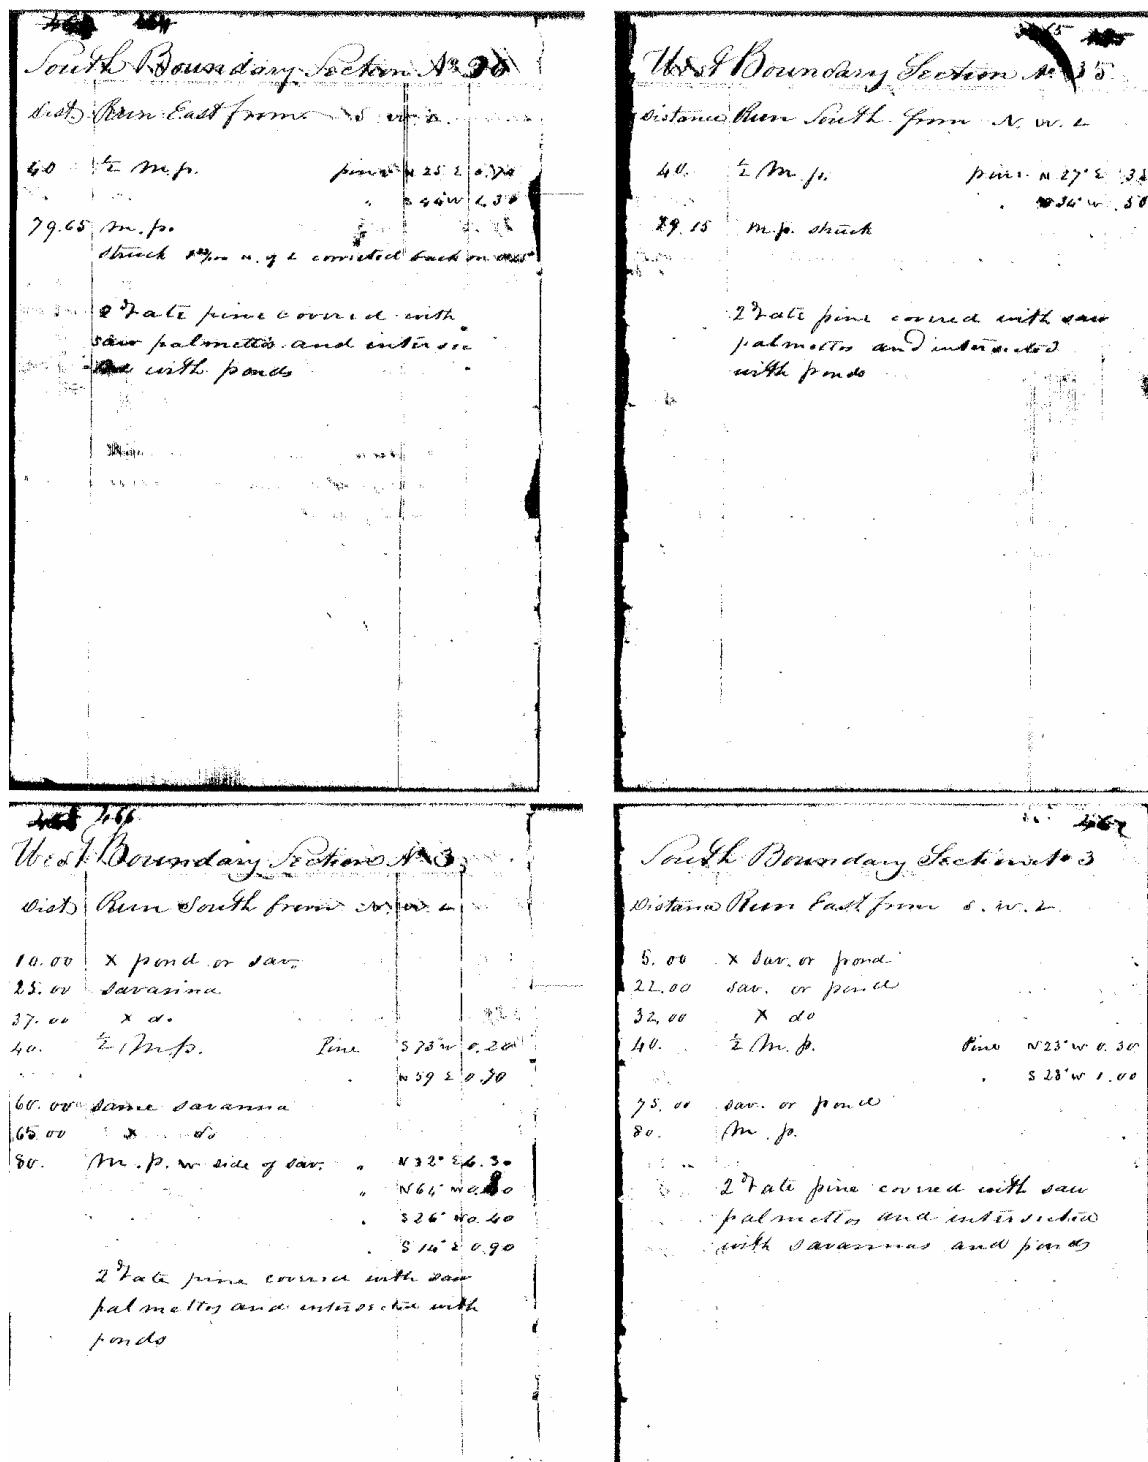 464
South Boundary Section No 36
Dist Run East from S W
40 ½ M.p. pine N 25 E 0.70
" S 44 W 1.30
79.65 m.p.
struck n. of corrected back on
2d rate pine covered with
saw palmettos and intersec
with ponds
West Boundary Section No 35
Distance Run South from N. W. L
40. ½ M.p. pine N 27° E .32
" S 34° W .50
79.15 m.p. struck
2d rate pine covered with saw
palmettos and intersected
with ponds
466
West Boundary Section No 3
Dist Run South from N. W. L
10.00 X pond or sav.
25.00 savanna
37.00 X do.
40. ½ M.p. Pine S 73° W 0.20
" N 59 E 0.70
60.00 same savanna
65.00 X do
80. M.p. W side of sav. " N 32° E 6.30
" N 64° W
" S 26° W 0.40
" S 14° E 0.90
2d rate pine covered with saw
palmettos and intersected with
ponds
467
South Boundary Section No 3
Distance Run East from S. W. L
5.00 X Sav. or pond
22.00 sav. or pond
32.00 X do
40. ½ M.p. Pine N 23° W 0.30
" S 28° W 1.00
75.00 sav. or pond
80. M.p.
2d rate pine covered with saw
palmettos and intersected
with savannas and ponds